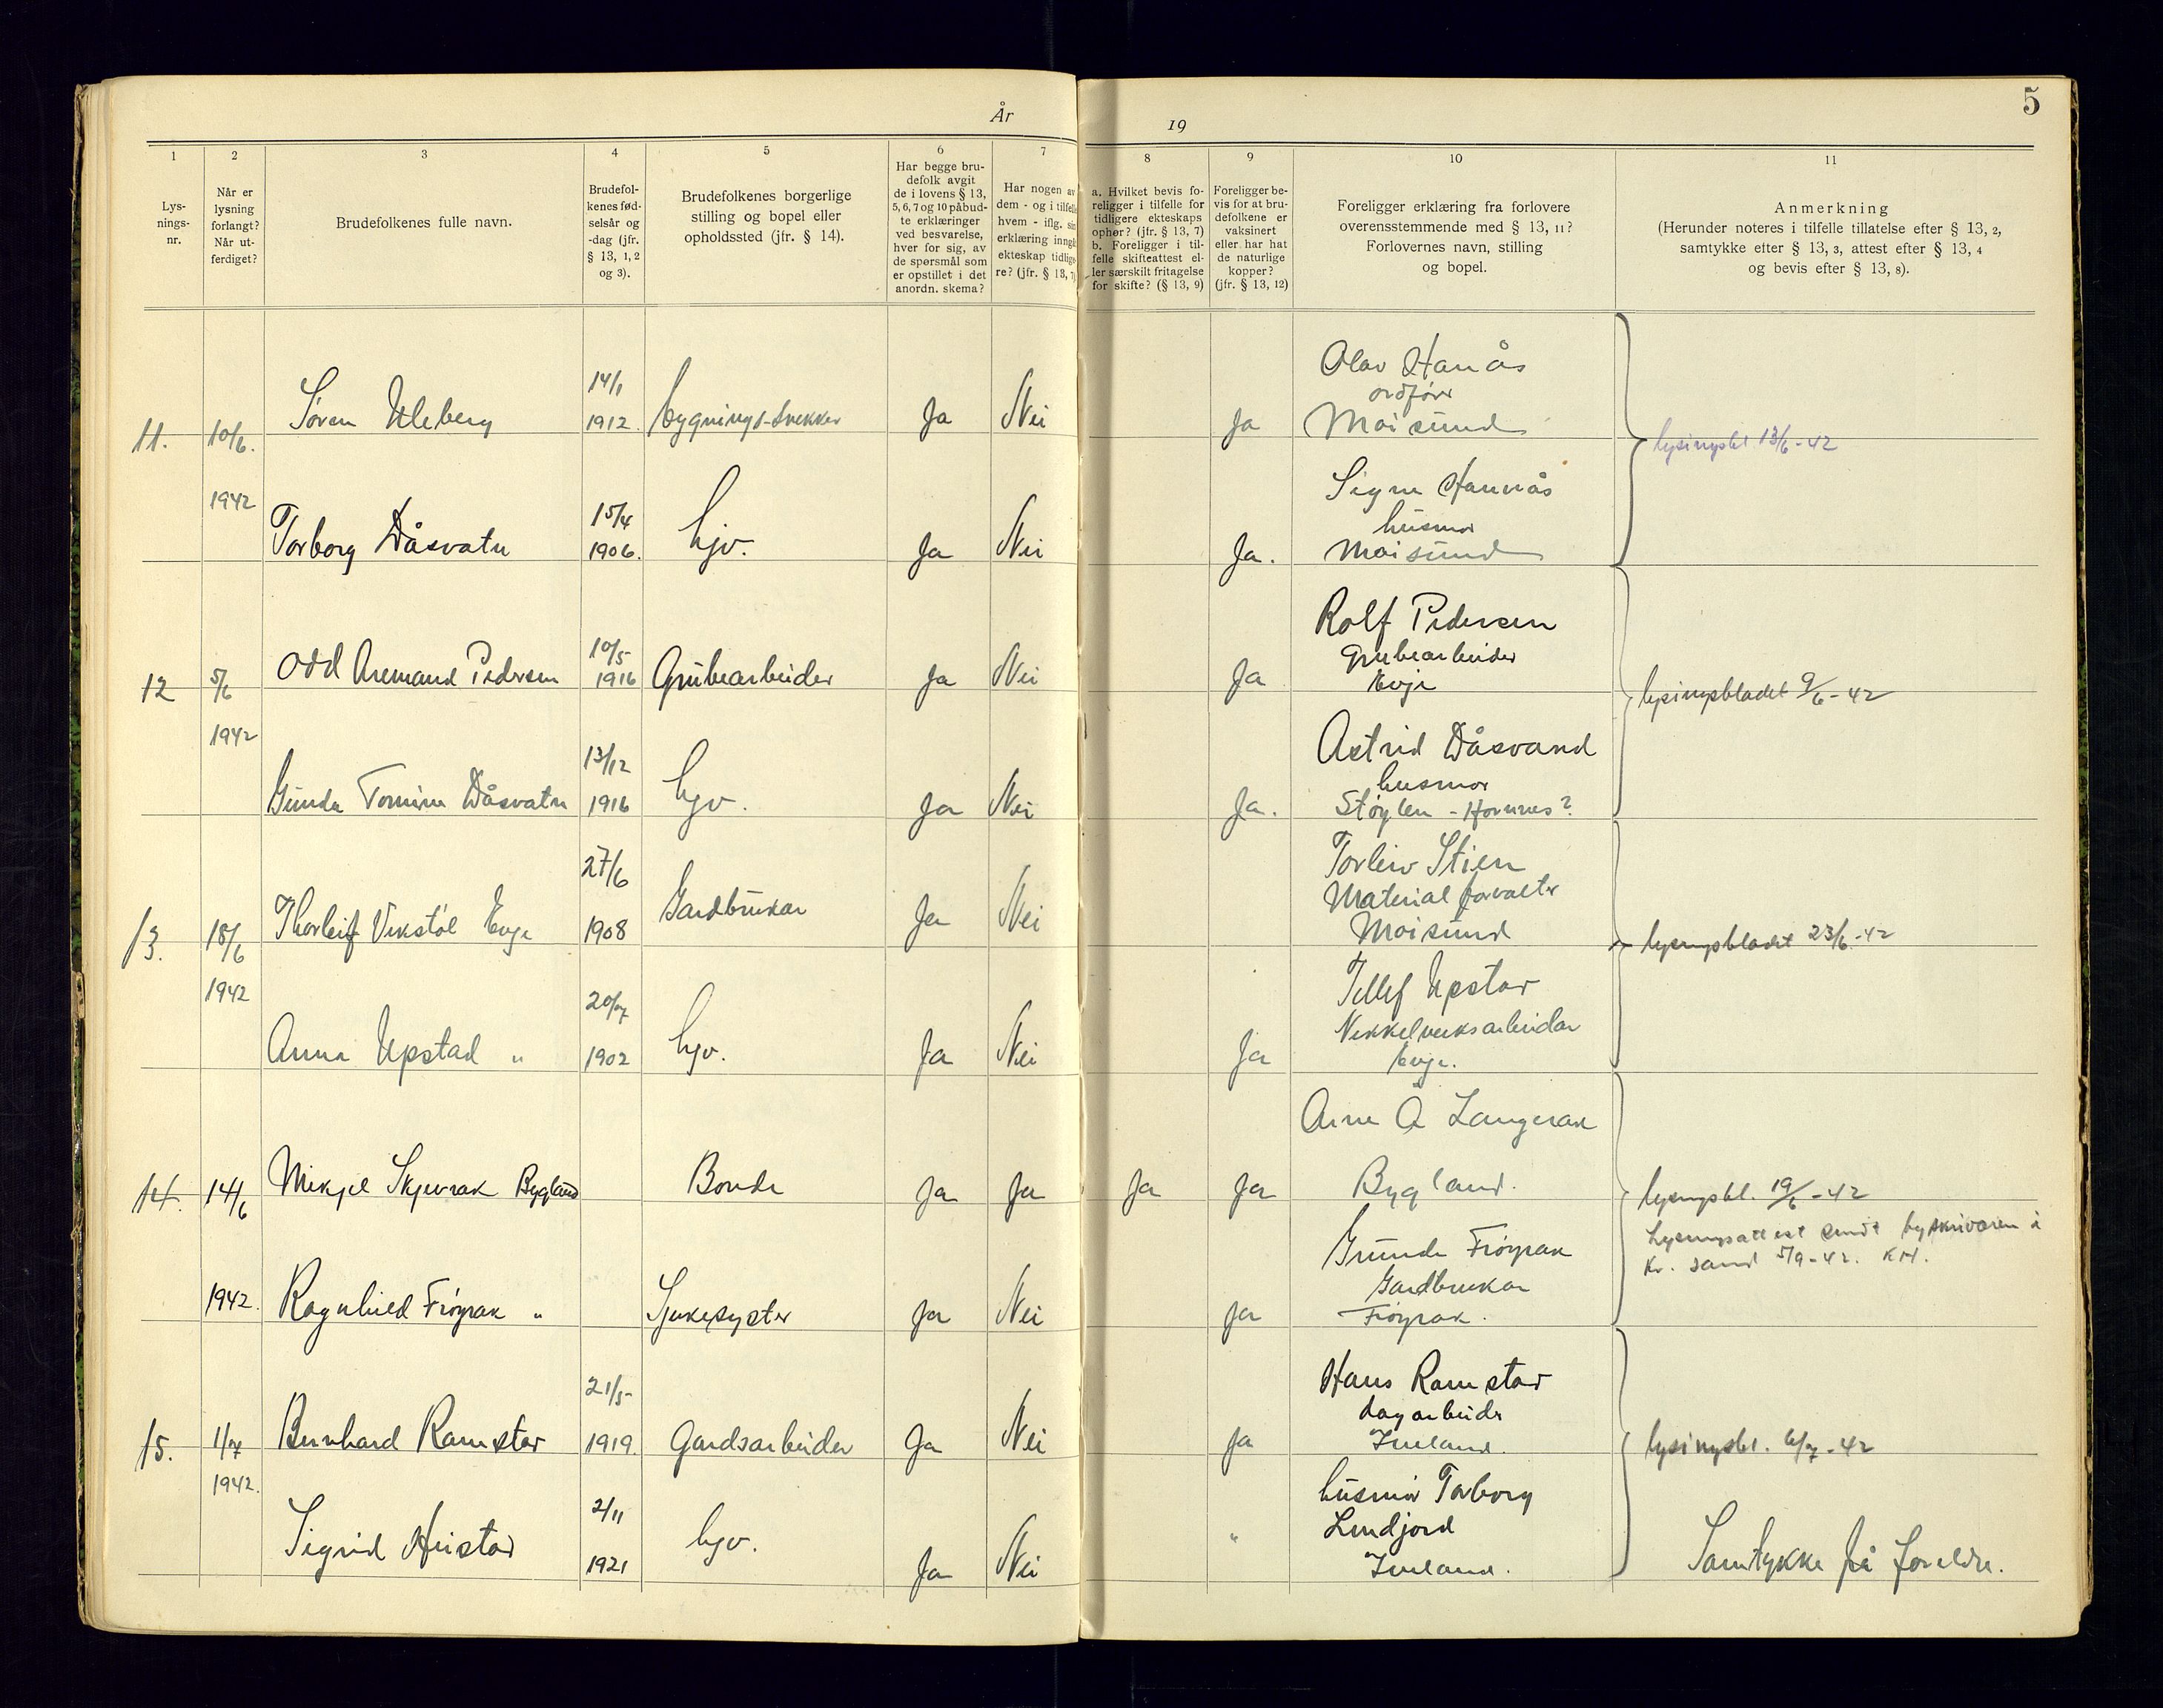 År 19
5
1
2
3
4
5
6
7
8
9
10
11
Lys-
nings-
nr.
Når er
lysning
forlangt?
Når ut-
ferdiget?
Brudefolkenes fulle navn.
Brudefol-
kenes fød-
selsår og
-dag (jfr.
§ 13, 1, 2
og 3).
Brudefolkenes borgerlige
stilling og bopel eller
opholdssted (jfr. § 14).
Har begge bru-
defolk avgit
de i lovens § 13,
5, 6, 7 og 10 påbud-
te erklæringer
ved besvarelse,
hver for sig, av
de spørsmål som
er opstillet i det
anordn. skema?
Har nogen av
dem - og i tilfelle
hvem - iflg. sin
erklæring inngå
ekteskap tidlige
re? (jfr. § 13, 7)
a. Hvilket bevis fo-
religger i tilfelle for
tidligere ekteskaps
ophør? (jfr. § 13, 7)
b. Foreligger i til-
felle skifteattest el-
ler særskilt fritagelse
for skifte? (§ 13, 9)
Foreligger be-
vis for at bru-
defolkene er
vaksinert
eller har hat
de naturlige
kopper?
(jfr. § 13, 12)
Foreligger erklæring fra forlovere
overensstemmende med § 13, 11?
Forlovernes navn, stilling
og bopel.
Anmerkning
(Herunder noteres i tilfelle tillatelse efter § 13, 2,
samtykke efter § 13, 3, attest efter § 13, 4
og bevis efter § 13, 8).
11. 10/6. Søren Uleberg 14/1 1912. bygnings-snekker Ja Nei Ja
Olav Hanås
ordfører
Moisund
lysingsbl. 13/6-42
1942 Torborg Dåsvatn 15/4 1906. hjv. Ja Nei Ja.
Signe Hannås
husmor
Moisund
12 5/6 Odd Aremand Pedersen 10/5 1916 Grubearbeider Ja Nei Ja
Rolf Pedersen
Grubearbeider
Evje
lysingsbladet 9/6-42
1942 Gunda Tomine Dåsvatn 13/12 1916 hjv. Ja Nei Ja.
Astrid Dåsvand
husmor
Støylen - Hornnes?
13. 18/6 Thorleif Vikstøl Evje 27/6 1908 Gardbrukar Ja Nei
Torleiv Stien
Materialforvalter
Moisund
lysingsbladet 23/6-42
1942 Anna Upstad " 20/7 1902 hjv. Ja Nei Ja
Tellef Upstad
Nikkelverksarbeidar
Evje.
14. 14/6 Mikjel Skjevrak Bygland Bonde Ja Ja Ja Ja
Arne Å Langerak
Bygland.
lysingsbl. 19/6-42
Lysingsattest sendt byskrivaren i
Kr. sand 5/9-42. KH.
1942. Ragnhild Frøyrak " Sjukesyster Ja Nei Ja
Gunde Frøyrak
Gardbrukar
Frøyrak.
15. 1/7 Bernhard Ramstad 21/5- 1919. Gardsarbeider Ja Nei Ja
Hans Ramstad
dagarbeider
Iveland.
lysingsbl. 6/7-42
1942. Sigrid Heistad 2/11 1921 hjv. Ja Nei "
husmor Torborg
Lindjord
Iveland.
Samtykke frå foreldre.